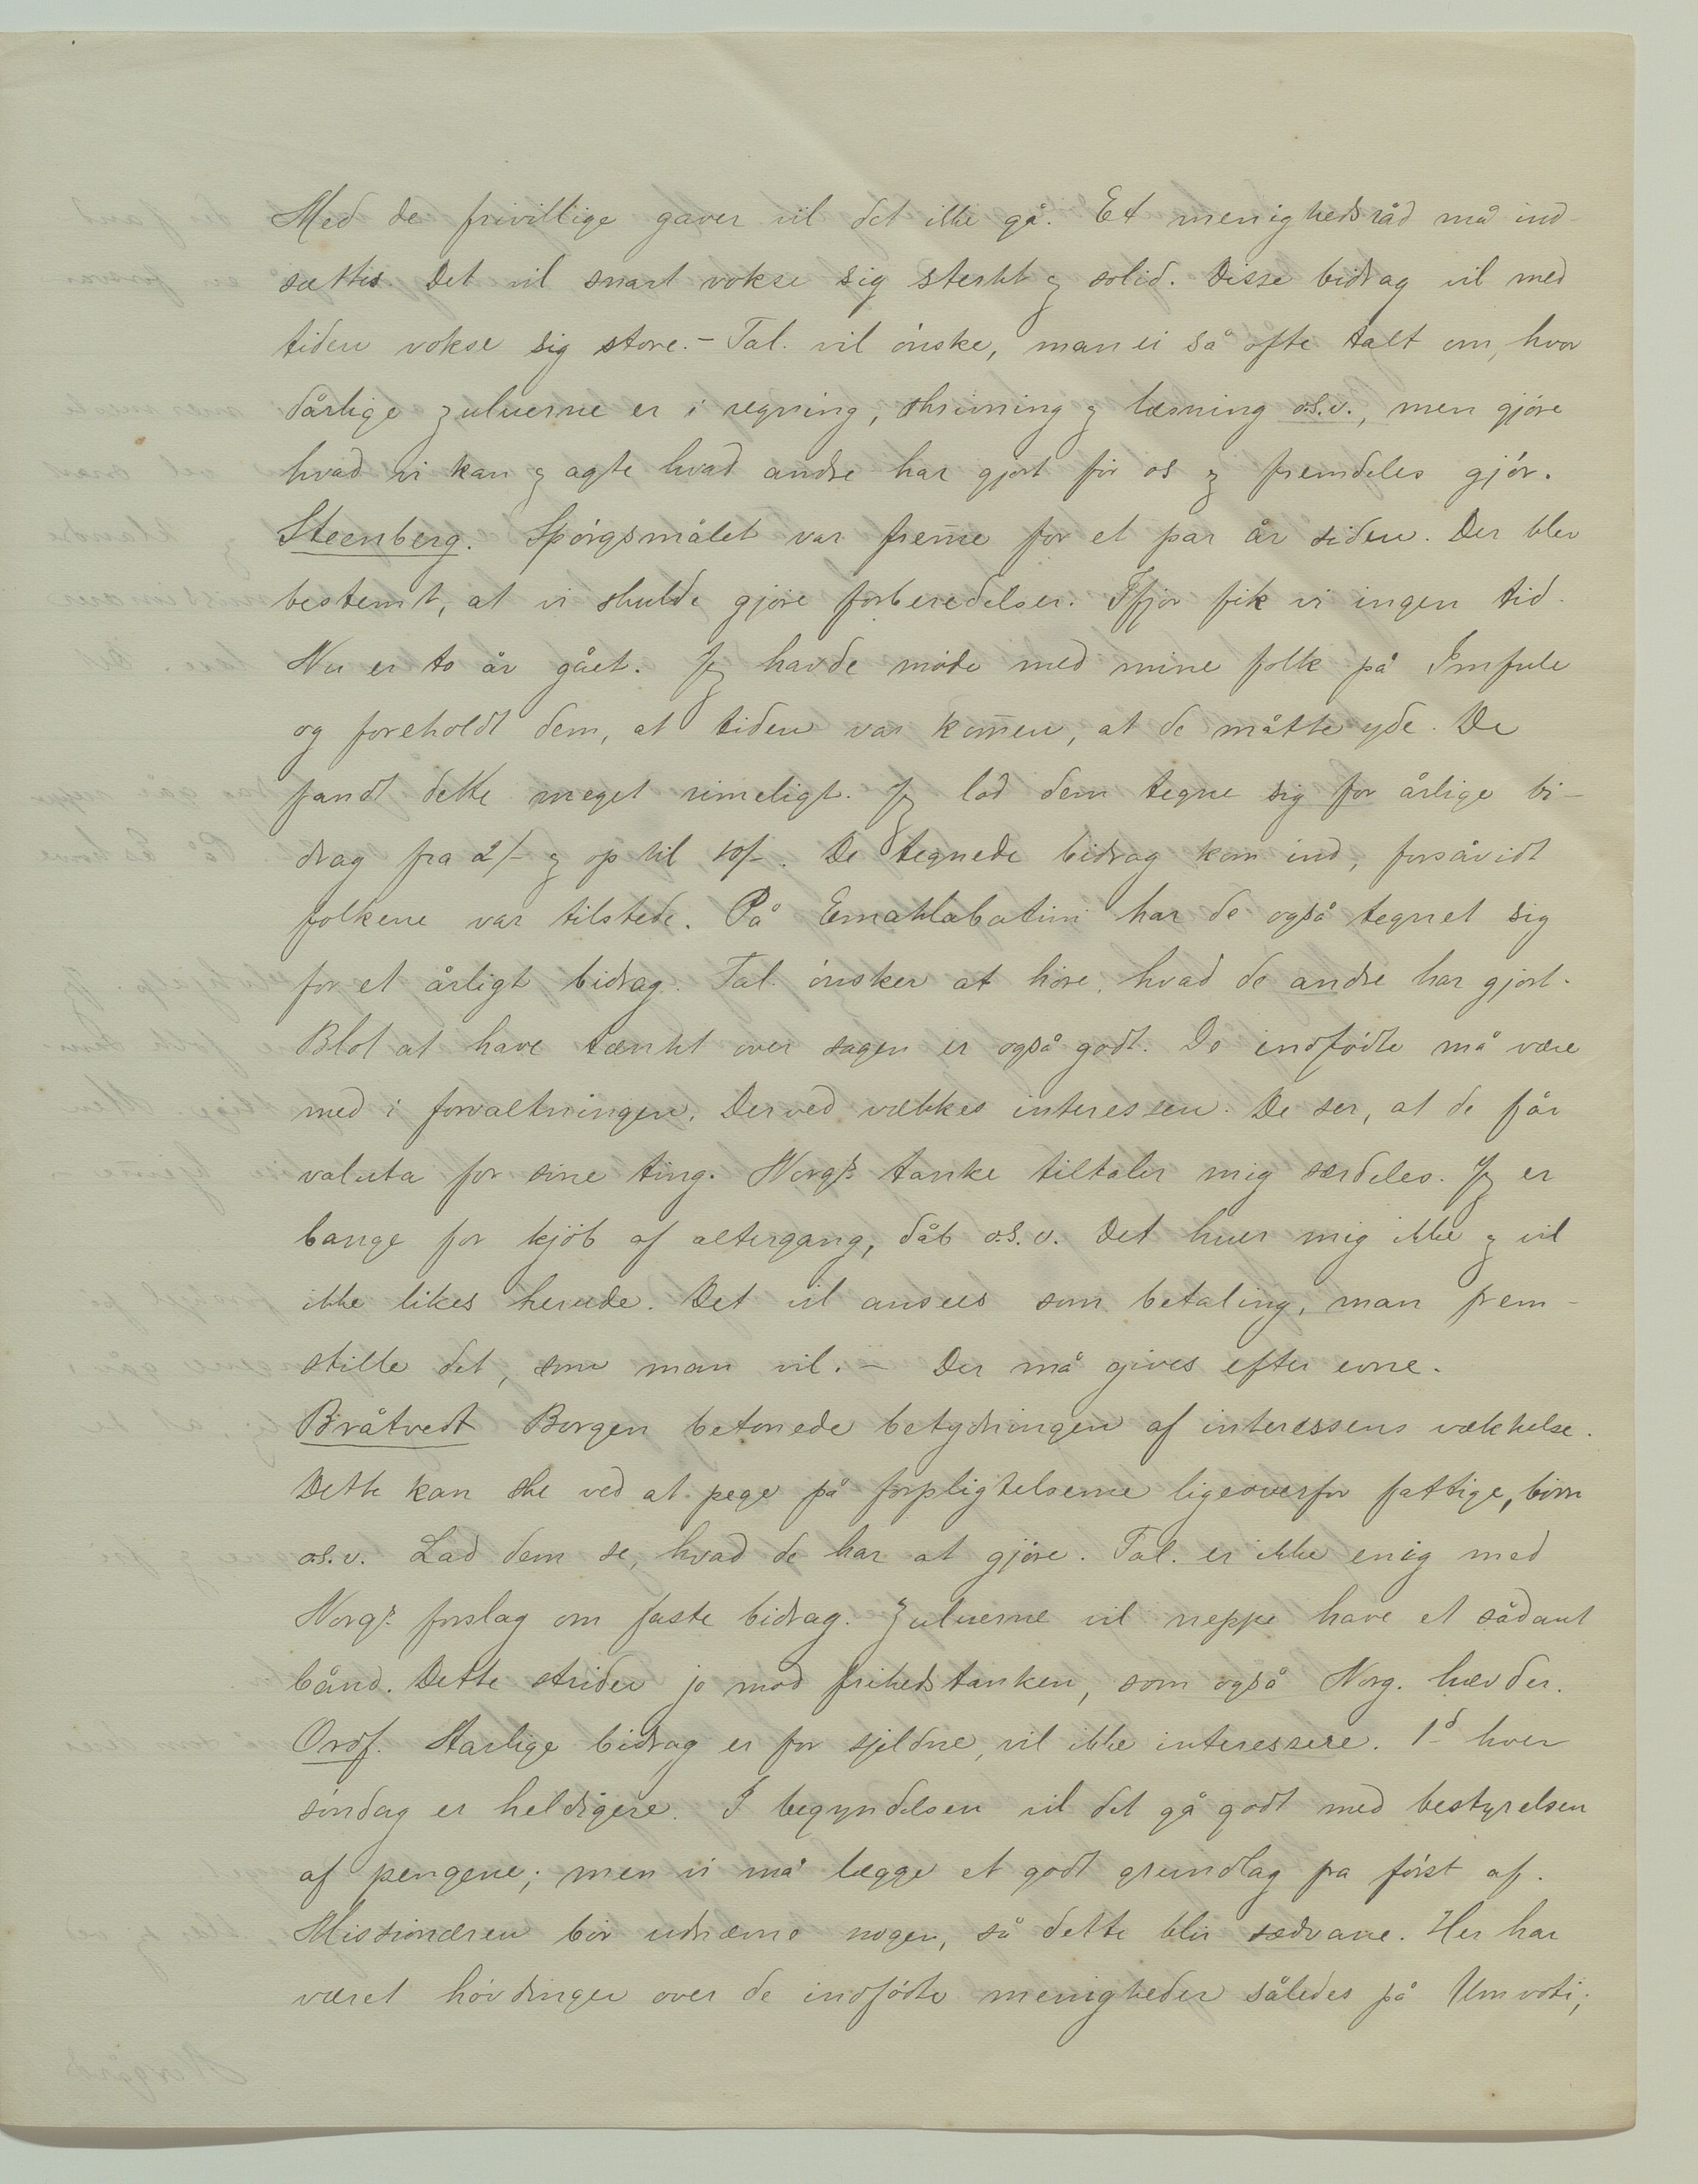 Med de frivillige gaver vil det ikke gå. Et menighedsråd må ind-
sættes. Det vil snart vokse sig sterkt og solid. Disse bidrag vil med
tiden vokse sig store. – Tal. vil ønske, man ei så ofte talt om, hvor
dårlige zuluerne er i regning, skrivning og læsning o.s.v., men gjøre
hvad vi kan og agte hvad andre har gjort for os og fremdeles gjør.
Steenberg. Spørgsmålet var fremme for et par år siden. Der blev
bestemt, at vi skulde gjøre forberedelser. Ifjor fik vi ingen tid.
Nu er to år gået. Jeg havde møde med mine folk på Imfule
og foreholdt dem, at tiden var kommen, at de måtte yde. De
fandt dette meget rimeligt. Jeg lod dem tegne sig for årlige bi-
drag fra 2/- og op til 10/-. De tegnede bidrag kom ind, forsåvidt
folkene var tilstede. På Emahlabatini har de også tegnet sig
for et årligt bidrag. Tal. ønsker at høre, hvad de andre har gjort.
Blot at have tænkt over sagen er også godt. De indfødte må være
med i forvaltningen. Derved vækkes interessen. De ser, at de får
valuta for sine ting. Norgs tanke tiltaler mig særdeles. Jeg er
bange for kjøb af altergang, dåb o.s.v. Det huer mig ikke og vil
ikke likes herude. Det vil ansees som betaling, man frem-
stille det, som man vil. – Der må gives efter evne.
Bråtvedt Borgen betonede betydningen af interessens vækkelse.
Dette kan ske ved at pege på forpligtelserne ligeoverfor fattige, børn
o.s.v. Lad dem se, hvad de har at gjøre. Tal. er ikke enig med
Norgs. forslag om faste bidrag. Zuluerne vil neppe have et sådant
bånd. Dette strider jo mod frihedstanken, som også Norg. hævder.
Ordf. Harlige bidrag er for sjeldne, vil ikke interessere. 1d hver
søndag er heldigere. I begyndelsen vil det gå godt med bestyrelsen
af pengene; men vi må lægge et godt grundlag fra først af.
Missionæren bør udnævne nogen, så dette blir sædvane. Her har
været høvdinger over de indfødte menigheder således på Umvoti;